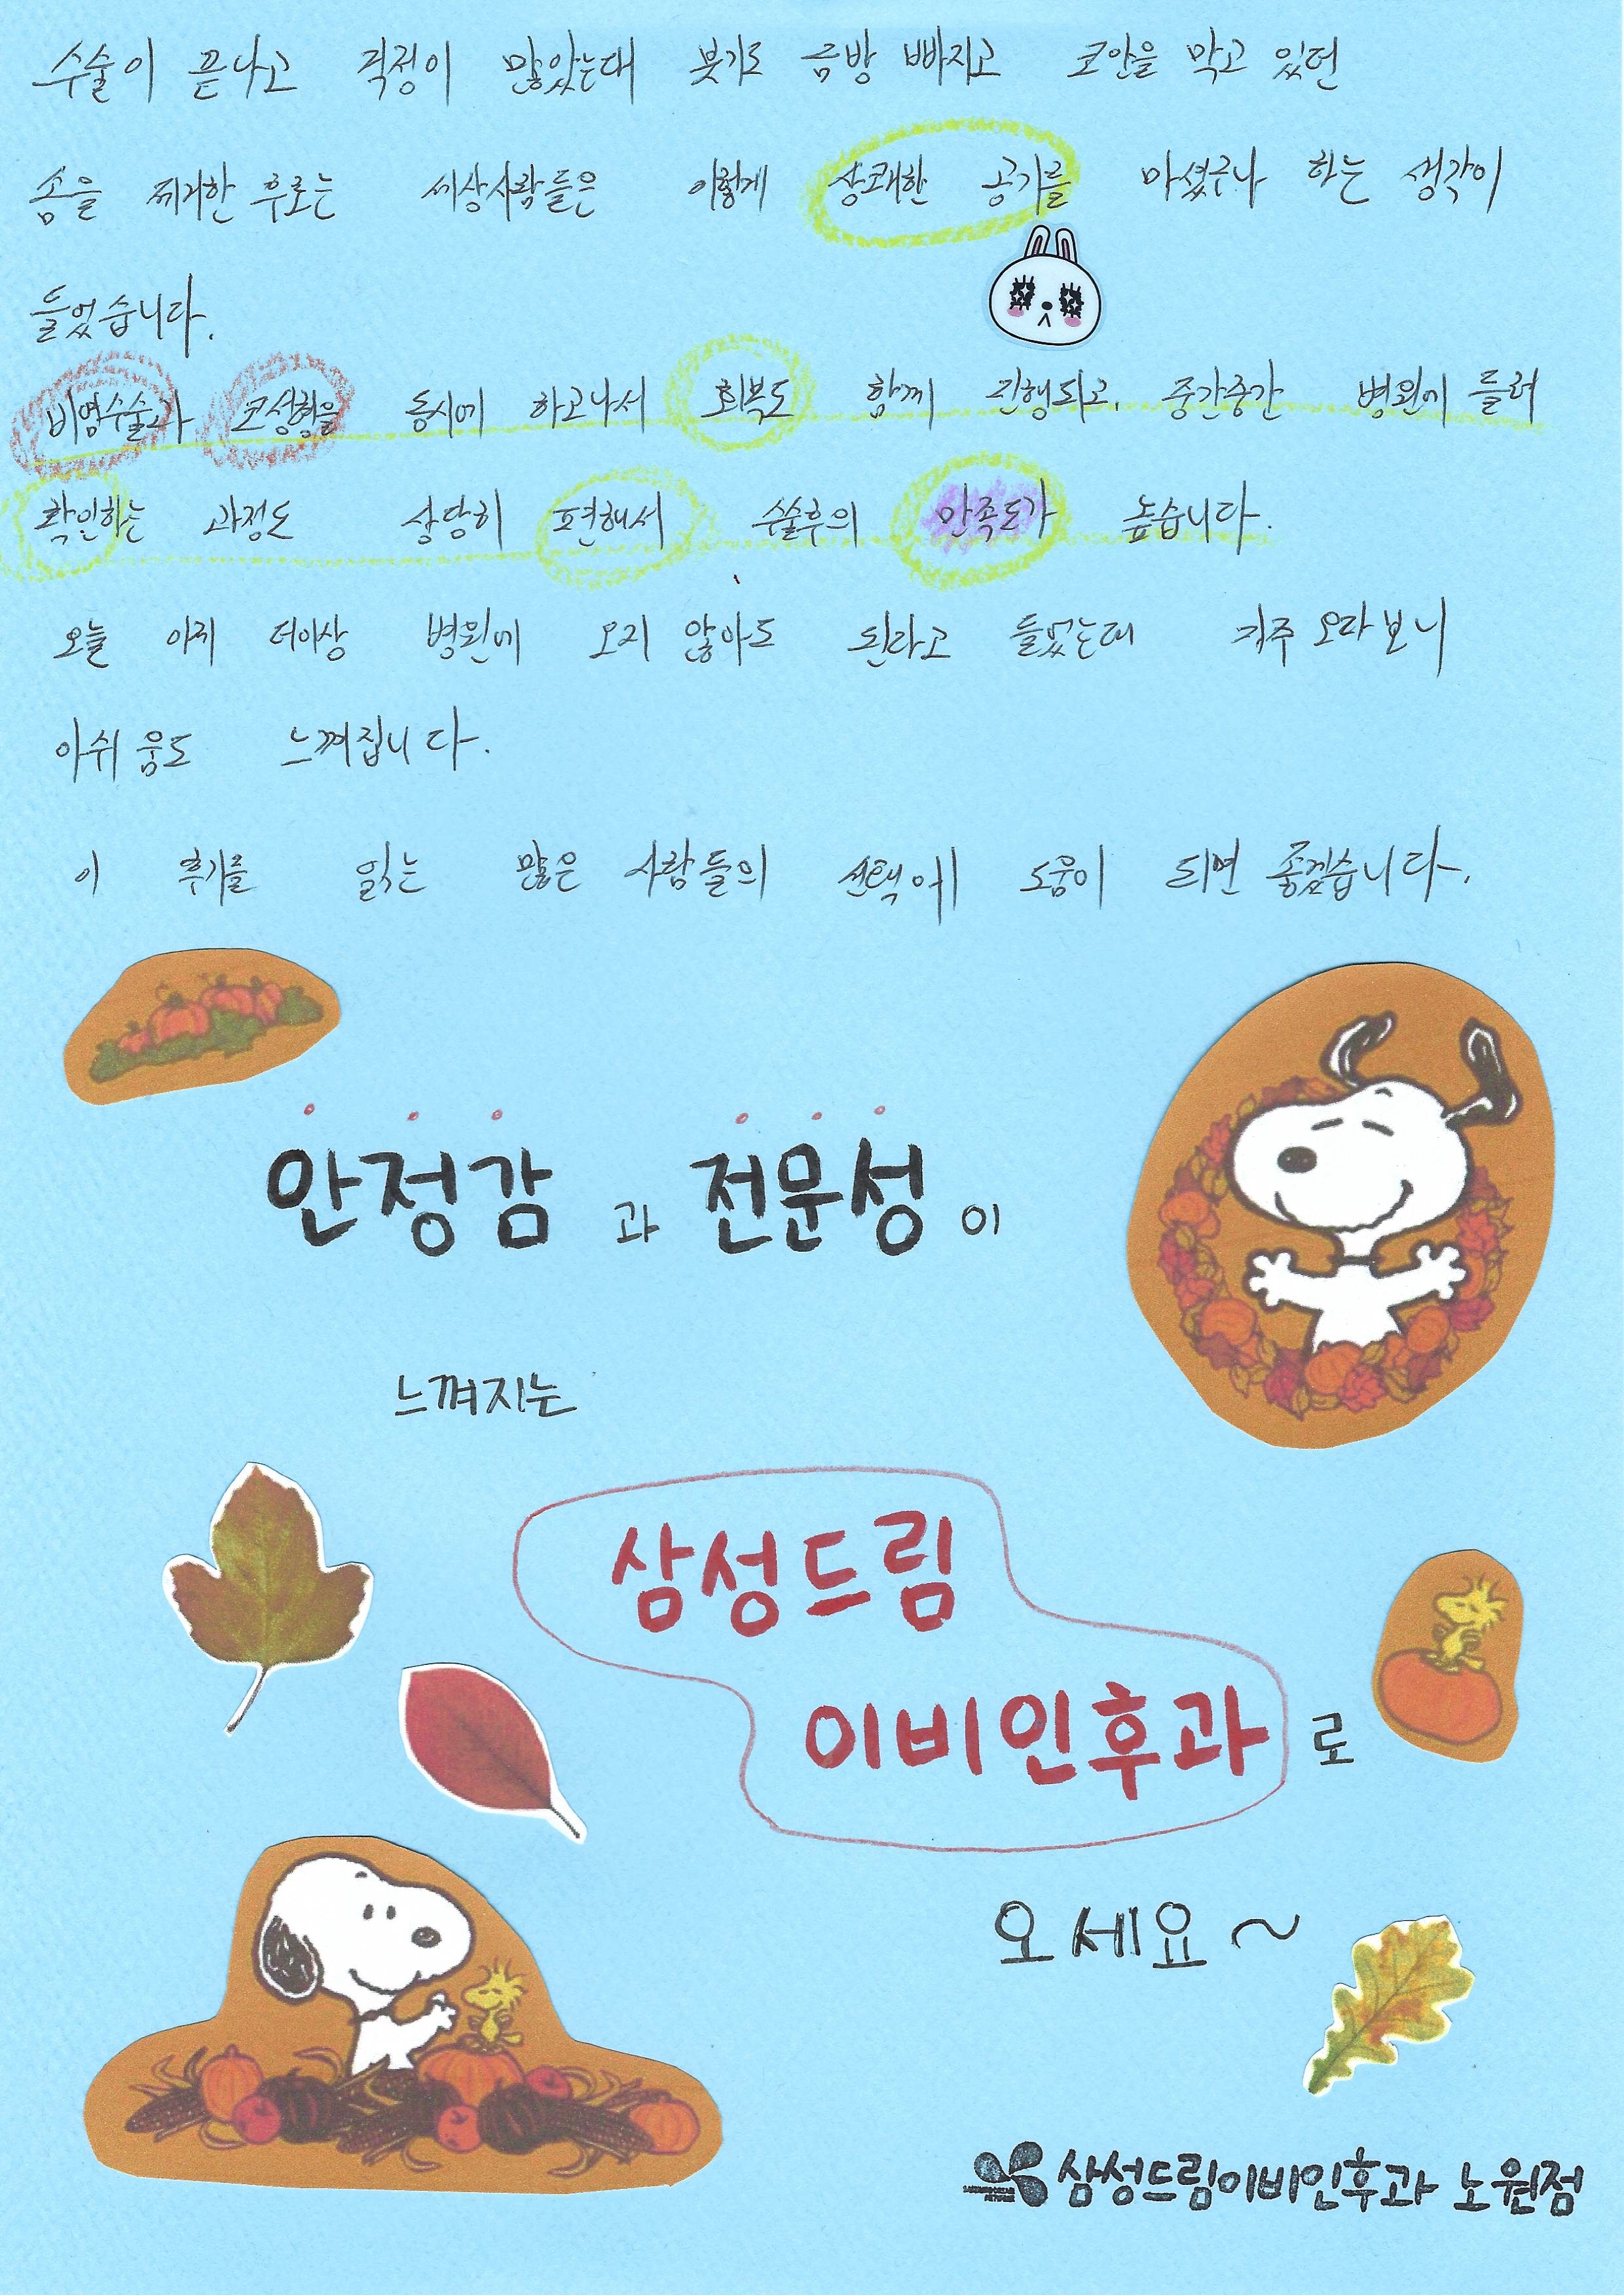 수술이 끝나고 걱정이 많았는대 붓기도 금방 빠지고 코안을 막고 있던
솜을 제거한 후로는 세상사람들은 이렇게 상쾌한 공기를 마셨구나 하는 생각이
들었습니다.
비염수술과 코성형을 동시에 하고나서 회복도 함께 진행되고, 중간중간 병원에 들려
확인하는 과정도 상당히 편해서 수술후의 만족도가 높습니다.
오늘 이제 더이상 병원에 오지 않아도 된다고 들었는데 자주 오다보니
아쉬움도 느껴집니다.
이 후기를 읽는 많은 사람들의 선택에 도움이 되면 좋겠습니다.
안정감과 전문성이
느껴지는
삼성드림
이비인후과로
오세요~
삼성드림이비인후과 노원점